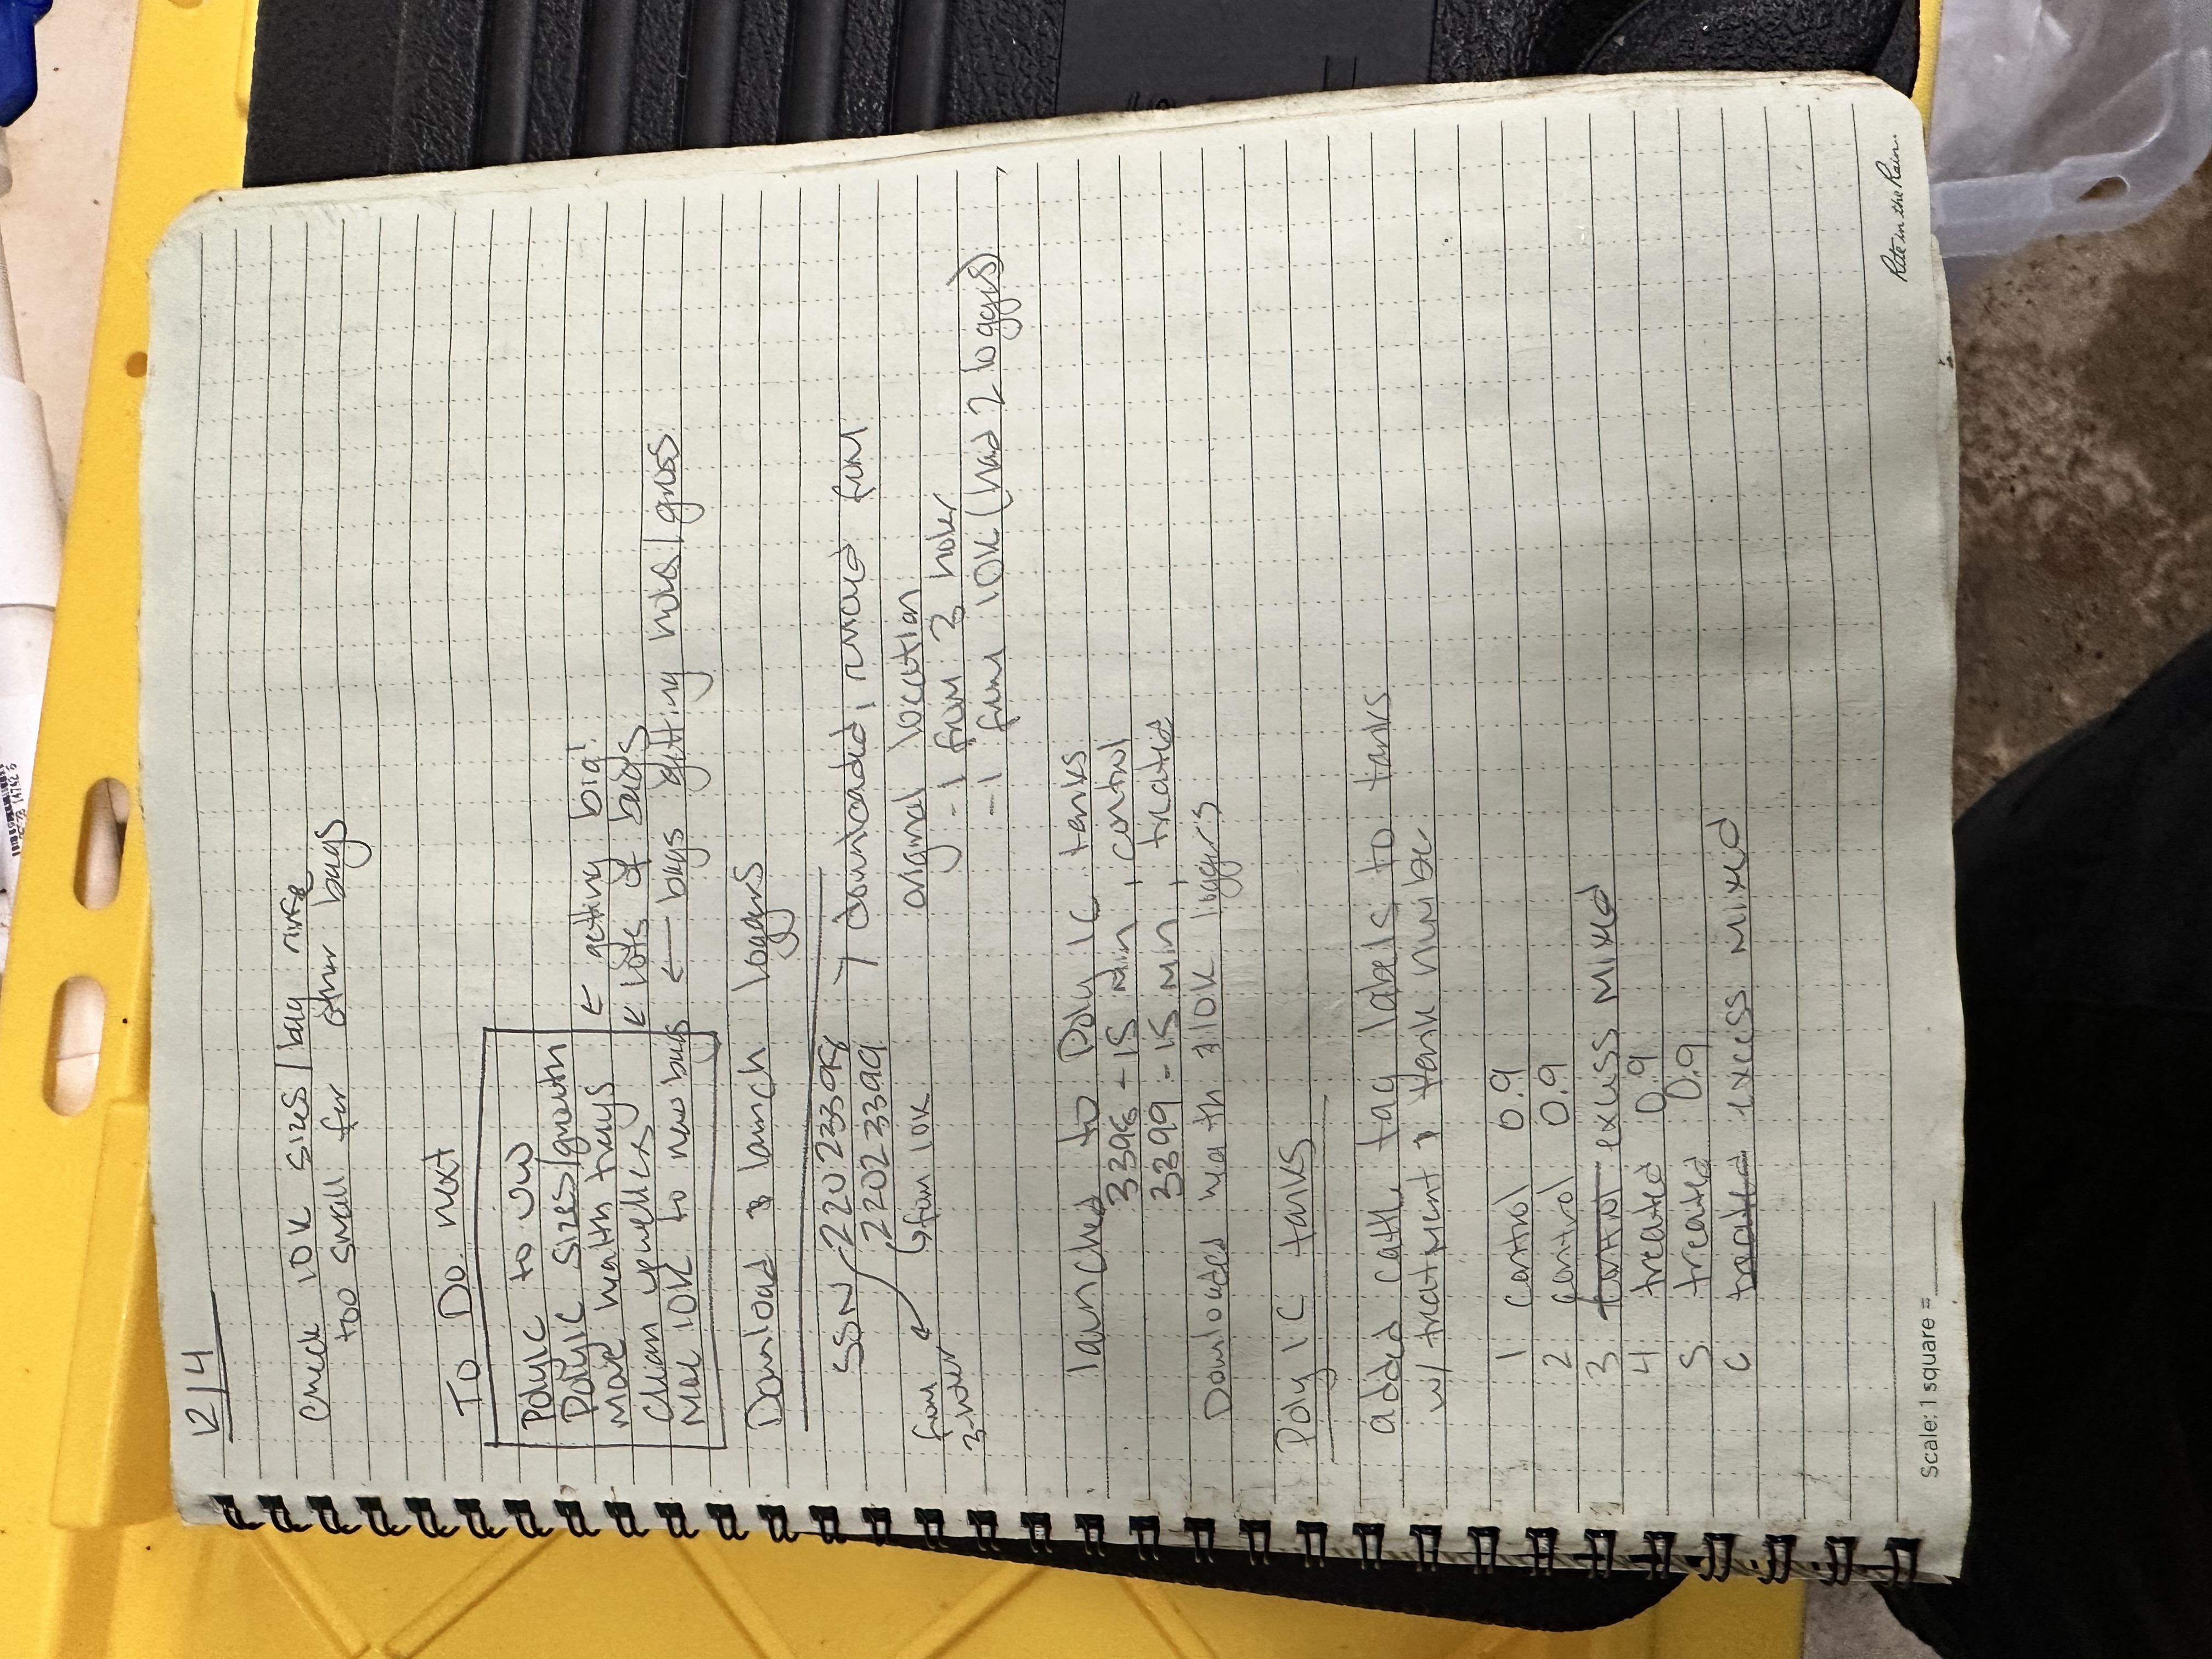 12/4
Check 10K sizes/bag rinse
too small for other bags
To Do next
PolyIC to UW
PolyIC sizes/growth
Move health trays ← getting big!
Clean upwellers ← lots of bugs
Move 10K to new bags ← bags getting holes/gross
Download & launch loggers
SSN - 22023398 > downloaded, removed from
22023399
original location
from 3-holer
from 10K
- 1 from 3 holer
- 1 from 10K (had 2 loggers)
launched to Poly IC tanks
3398 - 15 min, control
3399 - 15 min, treated
Downloaded health & 10K loggers
Poly IC tanks
added cattle tag labels to tanks
w/ treatment & tank number
1 control 0.9
2 control 0.9
3 control excess mixed
4 treated 0.9
5 treated 0.9
6 treated excess mixed
Scale: 1 square =
Rite in the Rain